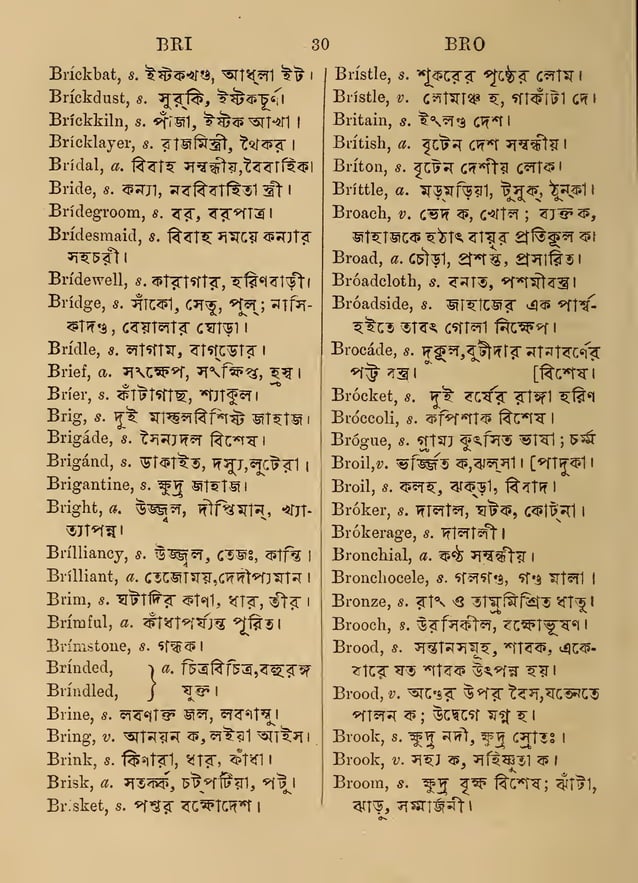 BRI 30 BRO
Bríckbat, s. ইষ্টকখণ্ড, আধ্লা ইট।
Bríckdust, s. সুর্কি, ইষ্টকচূর্ণ।
Bríckkiln, s. পাঁজা, ইষ্টক আখা।
Brícklayer, s. রাজমিস্ত্রী, থৈকর।
Brídal, a. বিবাহ সম্বন্ধীয়,বৈবাহিক।
Bride, s. কন্যা, নববিবাহিতা স্ত্রী।
Brídegroom, s. বর, বরপাত্র।
Brídesmaid, s. বিবাহ সময়ে কন্যার
সহচরী।
Brídewell, s. কারাগার, হরিণবাড়ী।
Brídge, s. সাঁকো, সেতু, পুল্; নাসি-
কাদণ্ড, বেয়ালার ঘোড়া।
Brídle, s. লাগাম, বাগ্ডোর।
Brief, a. সংক্ষেপ, সংক্ষিপ্ত, হ্রস্ব।
Bríer, s. কাঁটাগাছ, শ্যাকুল।
Brig, s. দুই মাস্তুলবিশিষ্ট জাহাজ।
Brigáde, s. সৈন্যদল বিশেষ।
Brigánd, s. ডাকাইত, দস্যু,লুটেরা।
Brigantine, s. ক্ষুদ্র জাহাজ।
Bright, a. উজ্জ্বল, দীপ্তিমান্, খ্যা-
ত্যাপন্ন।
Brílliancy, s. উজ্জ্বল, তেজঃ, কান্তি।
Brílliant, a. তেজোময়,দেদীপ্যমান।
Brim, s. ঘটাদির কাণা, ধার, তীর।
Brímful, a. কাঁধাপর্য্যন্ত পূরিত।
Brímstone, s. গন্ধক।
Brínded, } a. চিত্রবিচিত্র,বহুরঙ্গ
Bríndled, } যুক্ত।
Brine, s. লবণাক্ত জল, লবণাম্বু।
Bring, v. আনয়ন ক,লইয়া আইস।
Brink, s. কিনারা, ধার, কাঁধা।
Brisk, a. সতর্ক, চট্পটিয়া, পটু।
Brisket, s. পশুর বক্ষোদেশ।
Brístle, s. শূকরের পৃষ্ঠের লোম।
Brístle, v. লোমাঞ্চ হ, গাকাঁটা দে।
Britain, s. ইংলণ্ড দেশ।
Brítish, a. বৃটেন দেশ সম্বন্ধীয়।
Bríton, s. বৃটেন দেশীয় লোক।
Bríttle, a. মড়্মড়িয়া, টুসুক্, ঠুন্কা।
Broach, v. ভেদ ক, খোল; ব্যক্ত ক,
জাহাজকে হঠাৎ বায়ুর প্রতিকূল ক।
Broad, a. চৌড়া, প্রশস্ত, প্রসারিত।
Bróadcloth, s. বনাত, পশমীবস্ত্র।
Bróadside, s. জাহাজের এক পার্শ্ব-
হইতে তাবৎ গোলা নিক্ষেপ।
Brocáde, s. দুকূল,বুটীদার নানাবর্ণের
পট্ট বস্ত্র। [বিশেষ।
Brócket, s. দুই বর্ষের রাঙ্গা হরিণ
Bróccoli, s. কপিশাক বিশেষ।
Brógue, s. গ্রাম্য কুৎসিত ভাষা; চর্ম্ম
Broil,v. ভর্জ্জিত ক,ঝল্সা। [পাদুকা।
Broil, s. কলহ, ঝক্ড়া, বিবাদ।
Bróker, s. দালাল, ঘটক, কোট্না।
Brókerage, s. দালালী।
Bronchial, a. কণ্ঠ সম্বন্ধীয়।
Bronchocele, s. গলগণ্ড, গণ্ড মালা।
Bronze, s. রাং ও তাম্রমিশ্রিত ধাতু।
Brooch, s. উরসিকীল, বক্ষোভূষণ।
Brood, s. সন্তানসমূহ, শাবক, একে-
বারে যত শাবক উৎপন্ন হয়।
Brood, v. অণ্ডের উপর বৈস,যত্নেতে
পালন ক; উদ্বেগে মগ্ন হ।
Brook, s. ক্ষুদ্র নদী, ক্ষুদ্র স্রোতঃ।
Brook, v. সহ্য ক, সহিষ্ণুতা ক।
Broom, s. ক্ষুদ্র বৃক্ষ বিশেষ; ঝাঁটা,
ঝাড়ু, সম্মার্জনী।